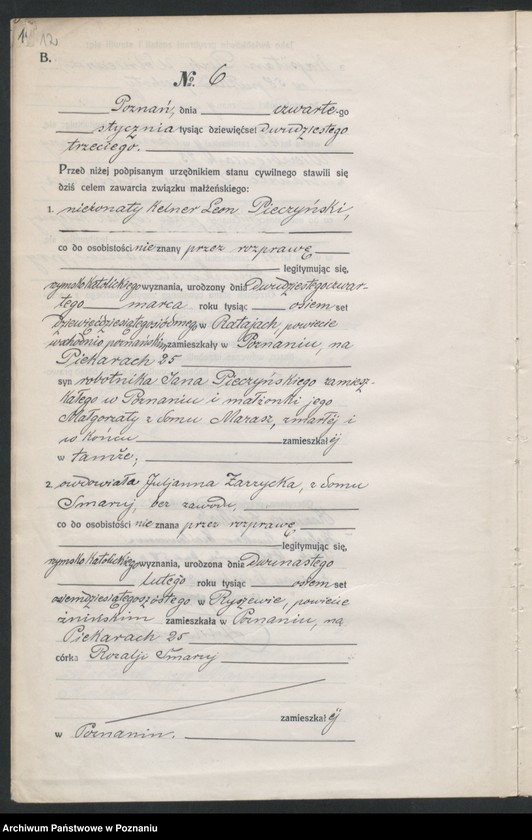 12.
B.
№ 6
Poznań, dnia czwarte-go
stycznia tysiąc dziewięćset dwudziestego
trzeciego.
Przed niżej podpisanym urzędnikiem stanu cywilnego stawili się
dziś celem zawarcia związku małżeńskiego:
1. nieżonaty kelner Leon Pieczyński,
co do osobistości nie znany przez rozprawę
legitymując się,
rzymsko katolickiego wyznania, urodzony dnia dwudziestego czwar-
tego marca roku tysiąc osiem set
dziewięćdziesiątego siódmego w Ratajach, powiecie
wschodnio poznańskim, zamieszkały w Poznaniu, na
Piekarach 25
syn robotnika Jana Pieczyńskiego zamiesz-
kałego w Poznaniu i małżonki jego
Małgorzaty z domu Marasz, zmarłej i
w końcu zamieszkałej
w tamże;
2. owdowiała Juljanna Zarzycka, z domu
Smaruj, bez zawodu,
co do osobistości nie znana przez rozprawę,
legitymując się,
rzymsko katolickiego wyznania, urodzona dnia dwunastego
lutego roku tysiąc osiem set
osiemdziesiątego szóstego w Ryszewie, powiecie
żnińskim zamieszkała w Poznaniu, na
Piekarach 25
córka Rozalji Smaruj
zamieszkałej
w Poznaniu.
Archiwum Państwowe w Poznaniu